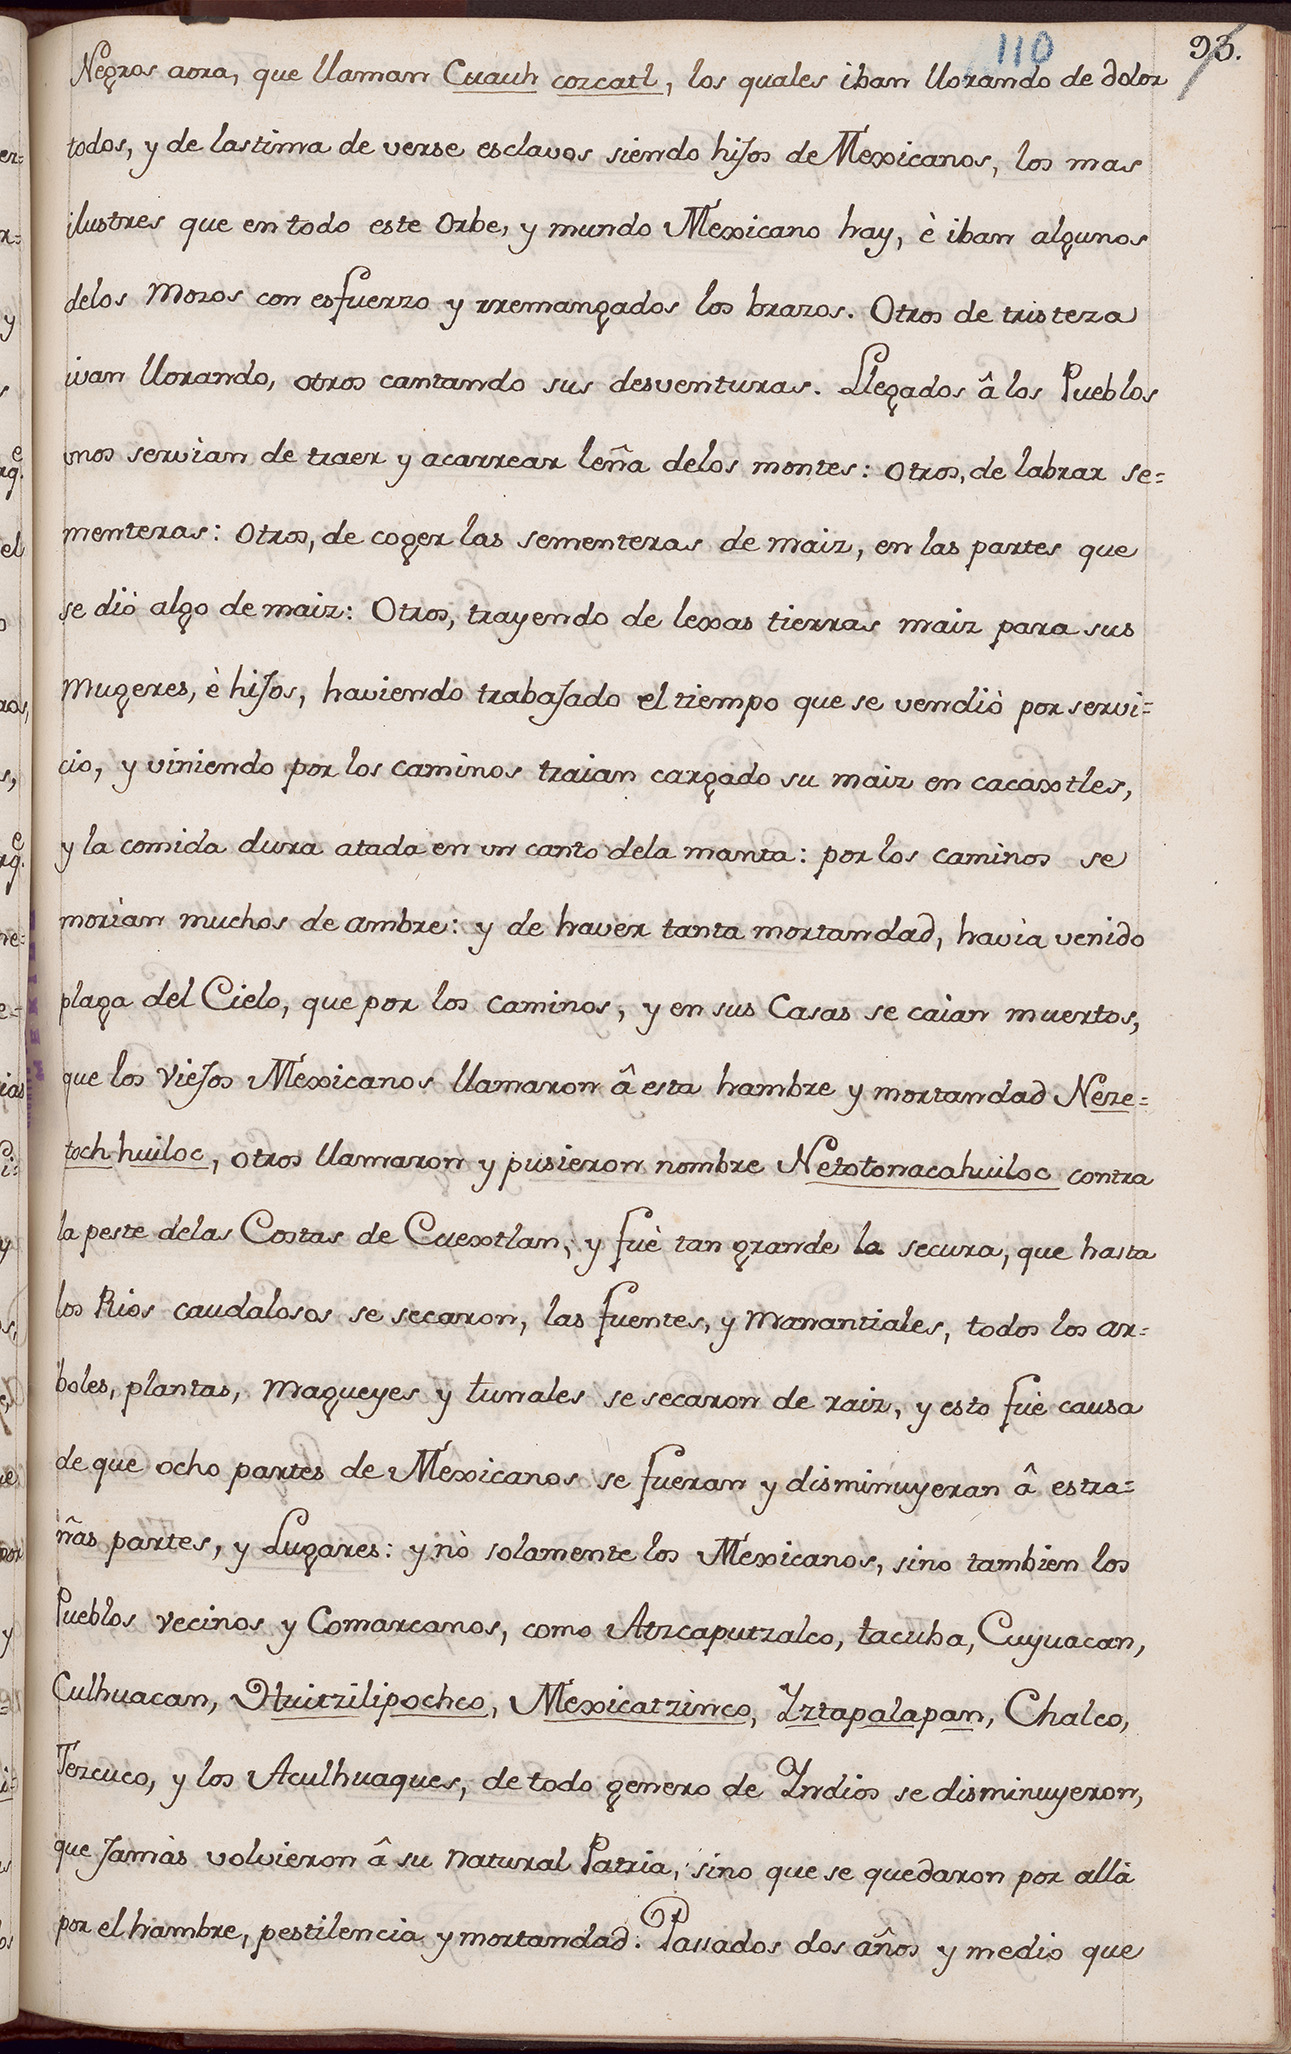 110
93.
Negros aora, que llaman Cuauh cozcatl, los quales iban llorando de dolor
todos, y de lastima de verse esclavos siendo hijos de Mexicanos, los mas
ilustres que en todo este Orbe, y mundo Mexicano hay, è iban algunos
delos Mozos con esfuerzo y rremangados los brazos. Otros de tristeza
ivan llorando, otros cantando sus desventuras. Llegados â los Pueblos
unos servian de traer y acarrear leña delos montes: Otros, de labrar se=
menteras: Otros, de coger las sementeras de maiz, en las partes que
se diò algo de maiz: Otros, trayendo de lexas tierras maiz para sus
Mugeres, è hijos, haviendo trabajado el tiempo que se vendiò por servi=
cio, y viniendo por los caminos traian cargado su maiz en cacaxtles,
y la comida dura atada en un canto dela manta: por los caminos se
morian muchos de ambre: y de haver tanta mortandad, havia venido
plaga del Cielo, que por los caminos, y en sus Casas se caian muertos,
que los Viejos Mexicanos llamaron â esta hambre y mortandad Neze=
toch huiloc, otros llamaron y pusieron nombre Netotonacahuiloc contra
la peste delas Costas de Cuextlan, y fuè tan grande la secura, que hasta
los Rios caudalosos se secaron, las fuentes, y Manantiales, todos los ar=
boles, plantas, Magueyes y tunales se secaron de raiz, y esto fuè causa
de que ocho partes de Mexicanos se fueran y disminuyeran â estra=
ñas partes, y Lugares: y nò solamente los Mexicanos, sino tambien los
Pueblos vecinos y Comarcanos, como Atzcaputzalco, tacuba, Cuyuacan,
Culhuacan, Huitzilipochco, Mexicatzinco, Yztapalapan, Chalco,
Tezcuco, y los Aculhuaques, de todo genero de Yndios se disminuyeron,
que Jamàs volvieron â su Natural Patria, sino que se quedaron por allà
por el hambre, pestilencia y mortandad. Passados dos años y medio que